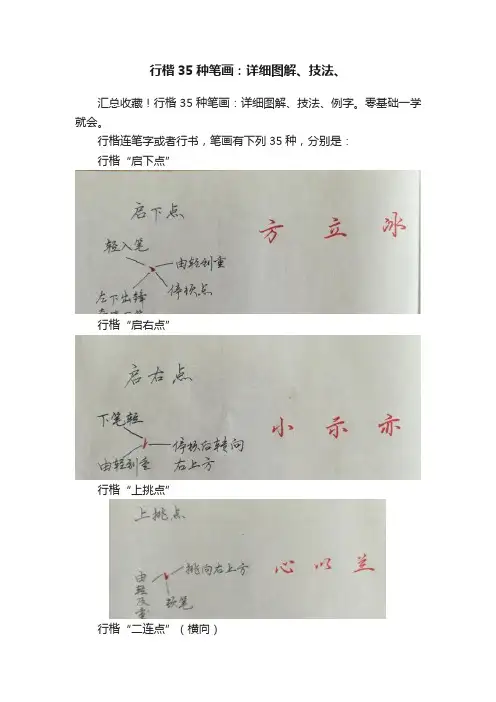 行楷35种笔画：详细图解、技法、
汇总收藏！行楷35种笔画：详细图解、技法、例字。零基础一学
就会。
行楷连笔字或者行书，笔画有下列35种，分别是：
行楷“启下点”
启下点
方 立 冰
轻入笔
由轻到重
停顿点
左下出锋
行楷“启右点”
启右点
小 示 亦
下笔轻
由轻到重
停顿后转向
右上方
行楷“上挑点”
上挑点
心 以 兰
挑向右上方
由轻及重
顿笔
行楷“二连点”（横向）